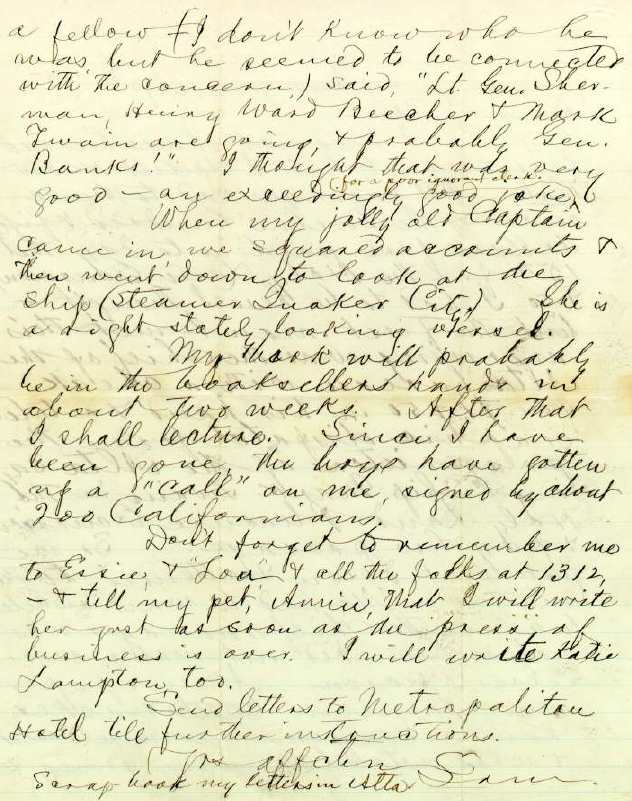 a fellow (I don't know who he
was, but he seemed to be connected
with the concern,) said, "Lt. Gen. Sher-
man, Henry Ward Beecher & Mark
Twain are going, & probably Gen.
Banks!" I thought that was very
good — an exceedingly good joke
(for a poor ignorant clerk.)
When my jolly old Captain
came in, we squared accounts &
then went down to look at the
ship (steamer Quaker City.) She is
a right stately looking vessel.
My book will probably
be in the booksellers hands in
about two weeks. After that
I shall lecture. Since I have
been gone, the boys have gotten
up a "call" on me, signed by about
200 Californians.
Don't forget to remember me
to Essie, & "Lou" & all the folks at 1312,
— & tell my pet, Annie, that I will write
her just as soon as the press of
business is over. I will write Katie
Lampton, too.
Send letters to Metropolitan
Hotel till further instructions.
Yrs affctn
Sam.
Scrap-book my letters in Alta